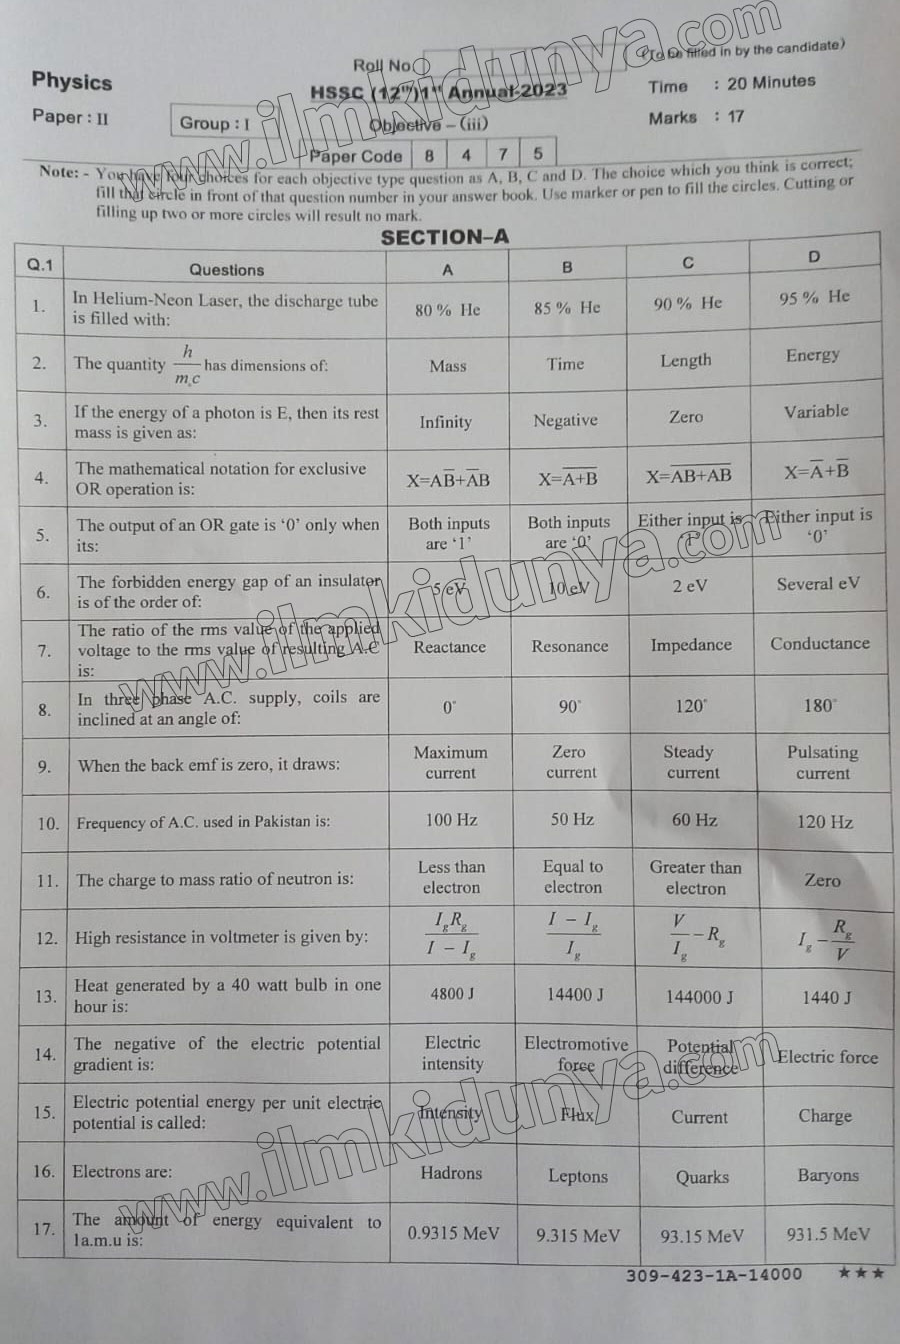 Roll No
(To be filled in by the candidate)
Physics
HSSC (12th) 1st Annual-2023
Time : 20 Minutes
Paper : II
Group : I
Objective – (iii)
Marks : 17
Paper Code 8 4 7 5
Note: - You have four choices for each objective type question as A, B, C and D. The choice which you think is correct;
fill that circle in front of that question number in your answer book. Use marker or pen to fill the circles. Cutting or
filling up two or more circles will result no mark.
SECTION–A
Q.1 Questions A B C D
1. In Helium-Neon Laser, the discharge tube
is filled with: 80 % He 85 % He 90 % He 95 % He
2. The quantity h/m₀c has dimensions of: Mass Time Length Energy
3. If the energy of a photon is E, then its rest
mass is given as: Infinity Negative Zero Variable
4. The mathematical notation for exclusive
OR operation is: X=AB̅+A̅B X=A̅+̅B̅ X=A̅B̅+̅A̅B̅ X=A̅+B̅
5. The output of an OR gate is ‘0’ only when
its: Both inputs are ‘1’ Both inputs are ‘0’ Either input is ‘1’ Either input is ‘0’
6. The forbidden energy gap of an insulator
is of the order of: 5 eV 10 eV 2 eV Several eV
7. The ratio of the rms value of the applied
voltage to the rms value of resulting A.C
is: Reactance Resonance Impedance Conductance
8. In three phase A.C. supply, coils are
inclined at an angle of: 0° 90° 120° 180°
9. When the back emf is zero, it draws: Maximum current Zero current Steady current Pulsating current
10. Frequency of A.C. used in Pakistan is: 100 Hz 50 Hz 60 Hz 120 Hz
11. The charge to mass ratio of neutron is: Less than electron Equal to electron Greater than electron Zero
12. High resistance in voltmeter is given by: IgRg/I – Ig I – Ig/Ig V/Ig – Rg Ig – Rg/V
13. Heat generated by a 40 watt bulb in one
hour is: 4800 J 14400 J 144000 J 1440 J
14. The negative of the electric potential
gradient is: Electric intensity Electromotive force Potential difference Electric force
15. Electric potential energy per unit electric
potential is called: Intensity Flux Current Charge
16. Electrons are: Hadrons Leptons Quarks Baryons
17. The amount of energy equivalent to
1a.m.u is: 0.9315 MeV 9.315 MeV 93.15 MeV 931.5 MeV
309-423-1A-14000 ★★★
www.ilmkidunya.com
www.ilmkidunya.com
www.ilmkidunya.com